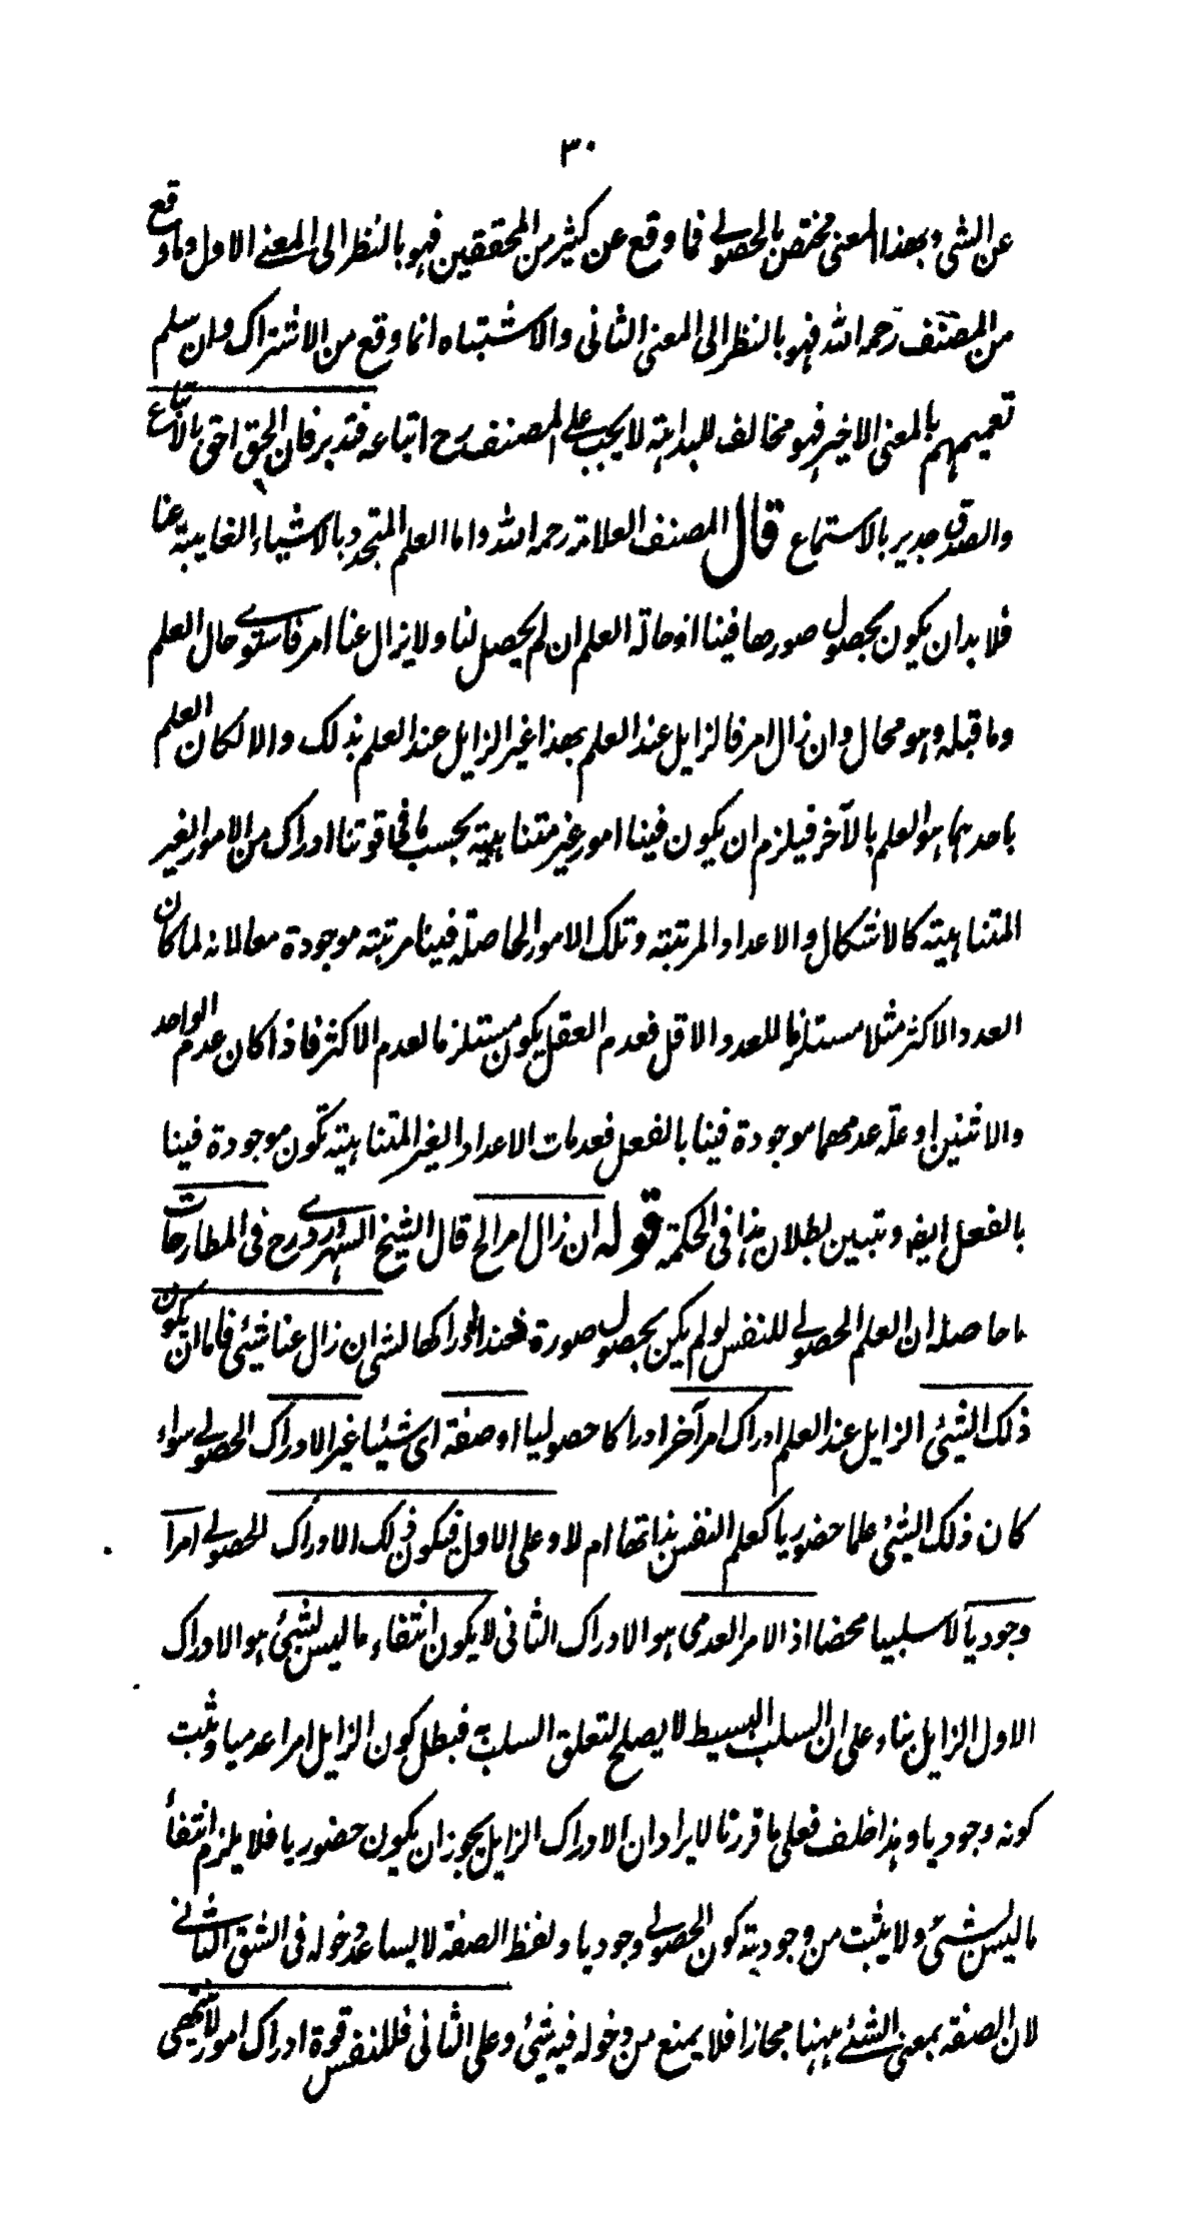 ٣٠
عن الشئ وبهذا المعنى مختص بالحصولي فما وقع عن كثير من المحققين فهو بالنظر الى المعنے الاول وما وقع
من المصنف رحمه الله فهو بالنظر الى المعنى الثانى والاشتباه انما وقع من الاشتراك وان سلم
تعميمهم بالمعنى الاخير فهو مخالف للبداهة لا يجب على المصنف رح اتباعه فتدبر فان الحق احق بالاتباع
والصدق جدير بالاستماع قال المصنف العلامة رحمه الله واما العلم المتجدد بالاشياء الغايبة عنا
فلا بد ان يكون بحصول صورها فينا اذ حالة العلم ان لم يحصل لنا ولا يزال عنا امر فاستوے حال العلم
وما قبله وهو محال وان زال امر فالزايل عند العلم بهذا غير الزايل عند العلم بذلك والا لكان العلم
باحدهما هو العلم بالآخر فيلزم ان يكون فينا امور غير متناهية بحسب ما فى قوتنا ادراك من الامور الغير
المتناهية كالاشكال والاعداد المرتبة وتلك الامور الحاصلة فينا مرتبة موجودة معا لانه لما كان
العدد الاكثر مثلا مستلزما للعدد الاقل فعدم العقل يكون مستلزما لعدم الاكثر فاذا كان عدم الواحد
والاثنين او علة عدمهما موجودة فينا بالفعل فعدمات الاعداد الغير المتناهية تكون موجودة فينا
بالفعل ايضا وتبين بطلان هذا فى الحكمة قوله ان زال امر الخ قال الشيخ السهروردے رح فى المطارحات
ما حاصله ان العلم الحصولي للنفس لو لم يكن بحصول صورة فعند ادراكها لشئ ان زال عنا شئ فاما ان يكون
ذلك الشئ الزايل عند العلم ادراك امر آخر ادراكا حصوليا او صفة اى شيئا غير الادراك الحصولي سواء
كان ذلك الشئ علما حضوريا كعلم النفس بذاتها ام لا وعلى الاول فيكون ذلك الادراك الحصولي امرا
وجوديا لا سلبيا محضا اذ الامر العدمى هو الادراك الثانى لا يكون انتفاء ما ليس لشئ هو الادراك
الاول الزايل بناء على ان السلب البسيط لا يصلح لتعلق السلب به فبطل كون الزايل امرا عدميا وثبت
كونه وجوديا وهذا خلف فعلى ما قررنا لا يراد ان الادراك الزايل يجوز ان يكون حضوريا فلا يلزم انتفاء
ما ليس بشئ ولا يثبت من وجودية كون الحصولي وجوديا ولفظ الصفة لا يساعد دخوله فى الشق الثانے
لان الصفة بمعنى الشئ ههنا مجازا فلا يمنع من دخوله فيه شئ وعلى الثانى فللنفس قوة ادراك امور لا تنتهى